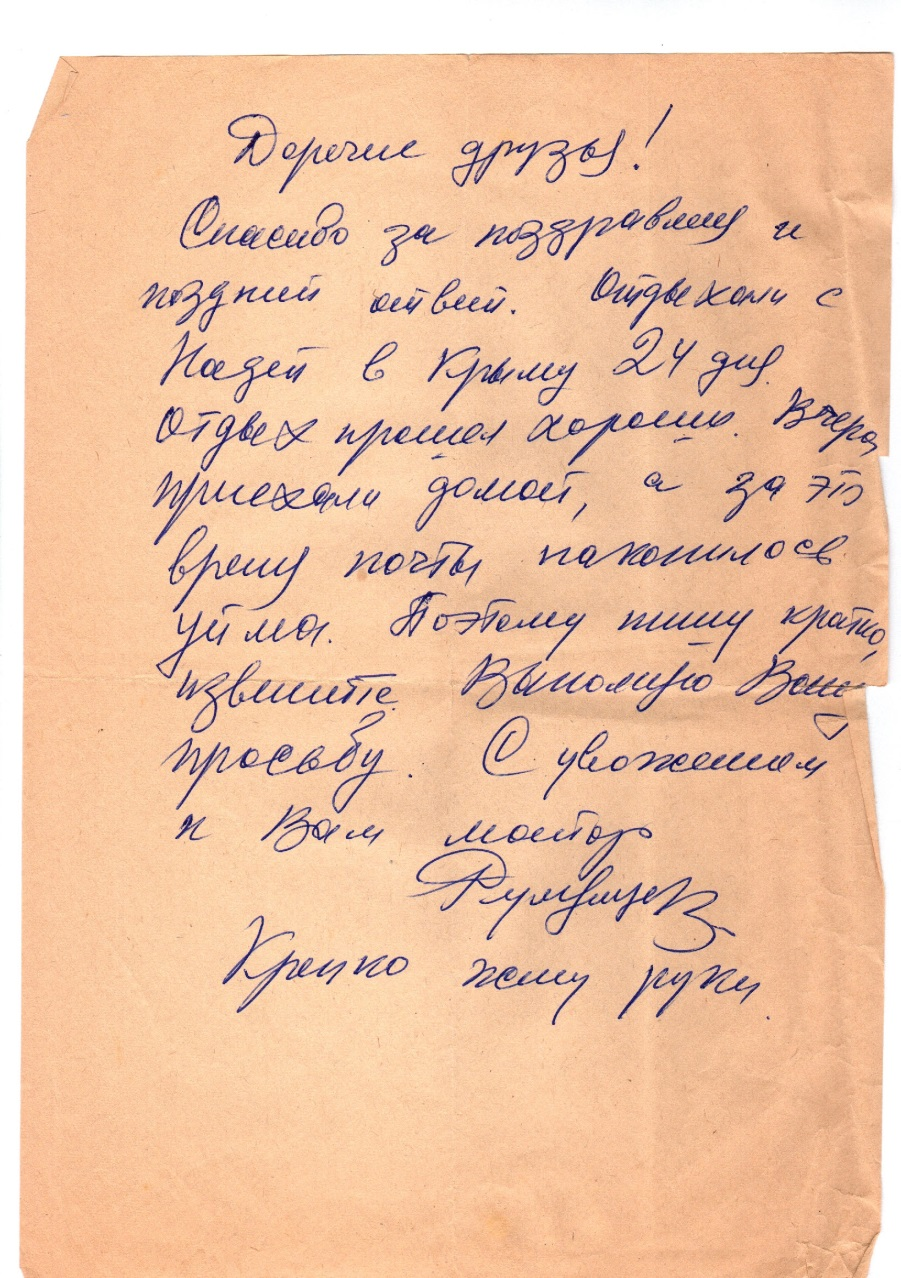 Дорогие друзья!
Спасибо за поздравления и
поздний ответ. Отдыхали с
Надей в Крыму 24 дня.
Отдых прошел хорошо. Вчера
приехали домой, а за это
время почты накопилось
уйма. Поэтому пишу кратко,
извините. Выполняю Вашу
просьбу. С уважением
к Вам майор
Крепко жму руки.